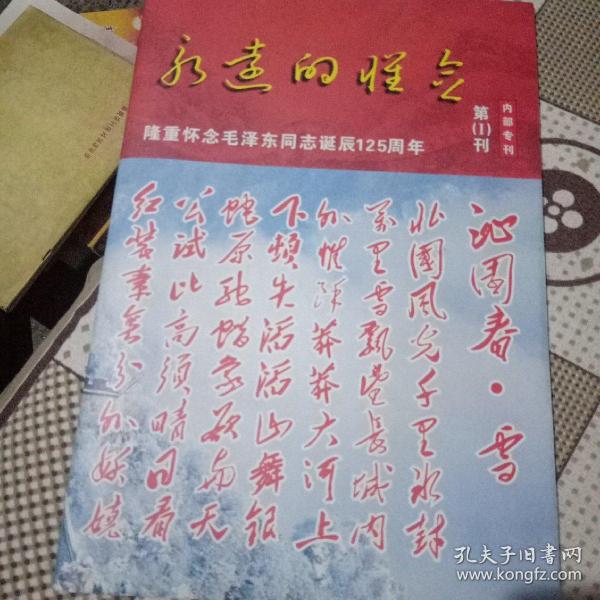 永远的怀念
隆重怀念毛泽东同志诞辰125周年
第(1)刊
内部专刊
沁園春·雪
北國風光千里冰封
萬里雪飄望長城内
外惟餘莽莽大河上
下頓失滔滔山舞銀
蛇原驰蜡象欲与天
公試比高須晴日看
紅裝素裹分外妖嬈
孔夫子旧书网
www.kongfz.com